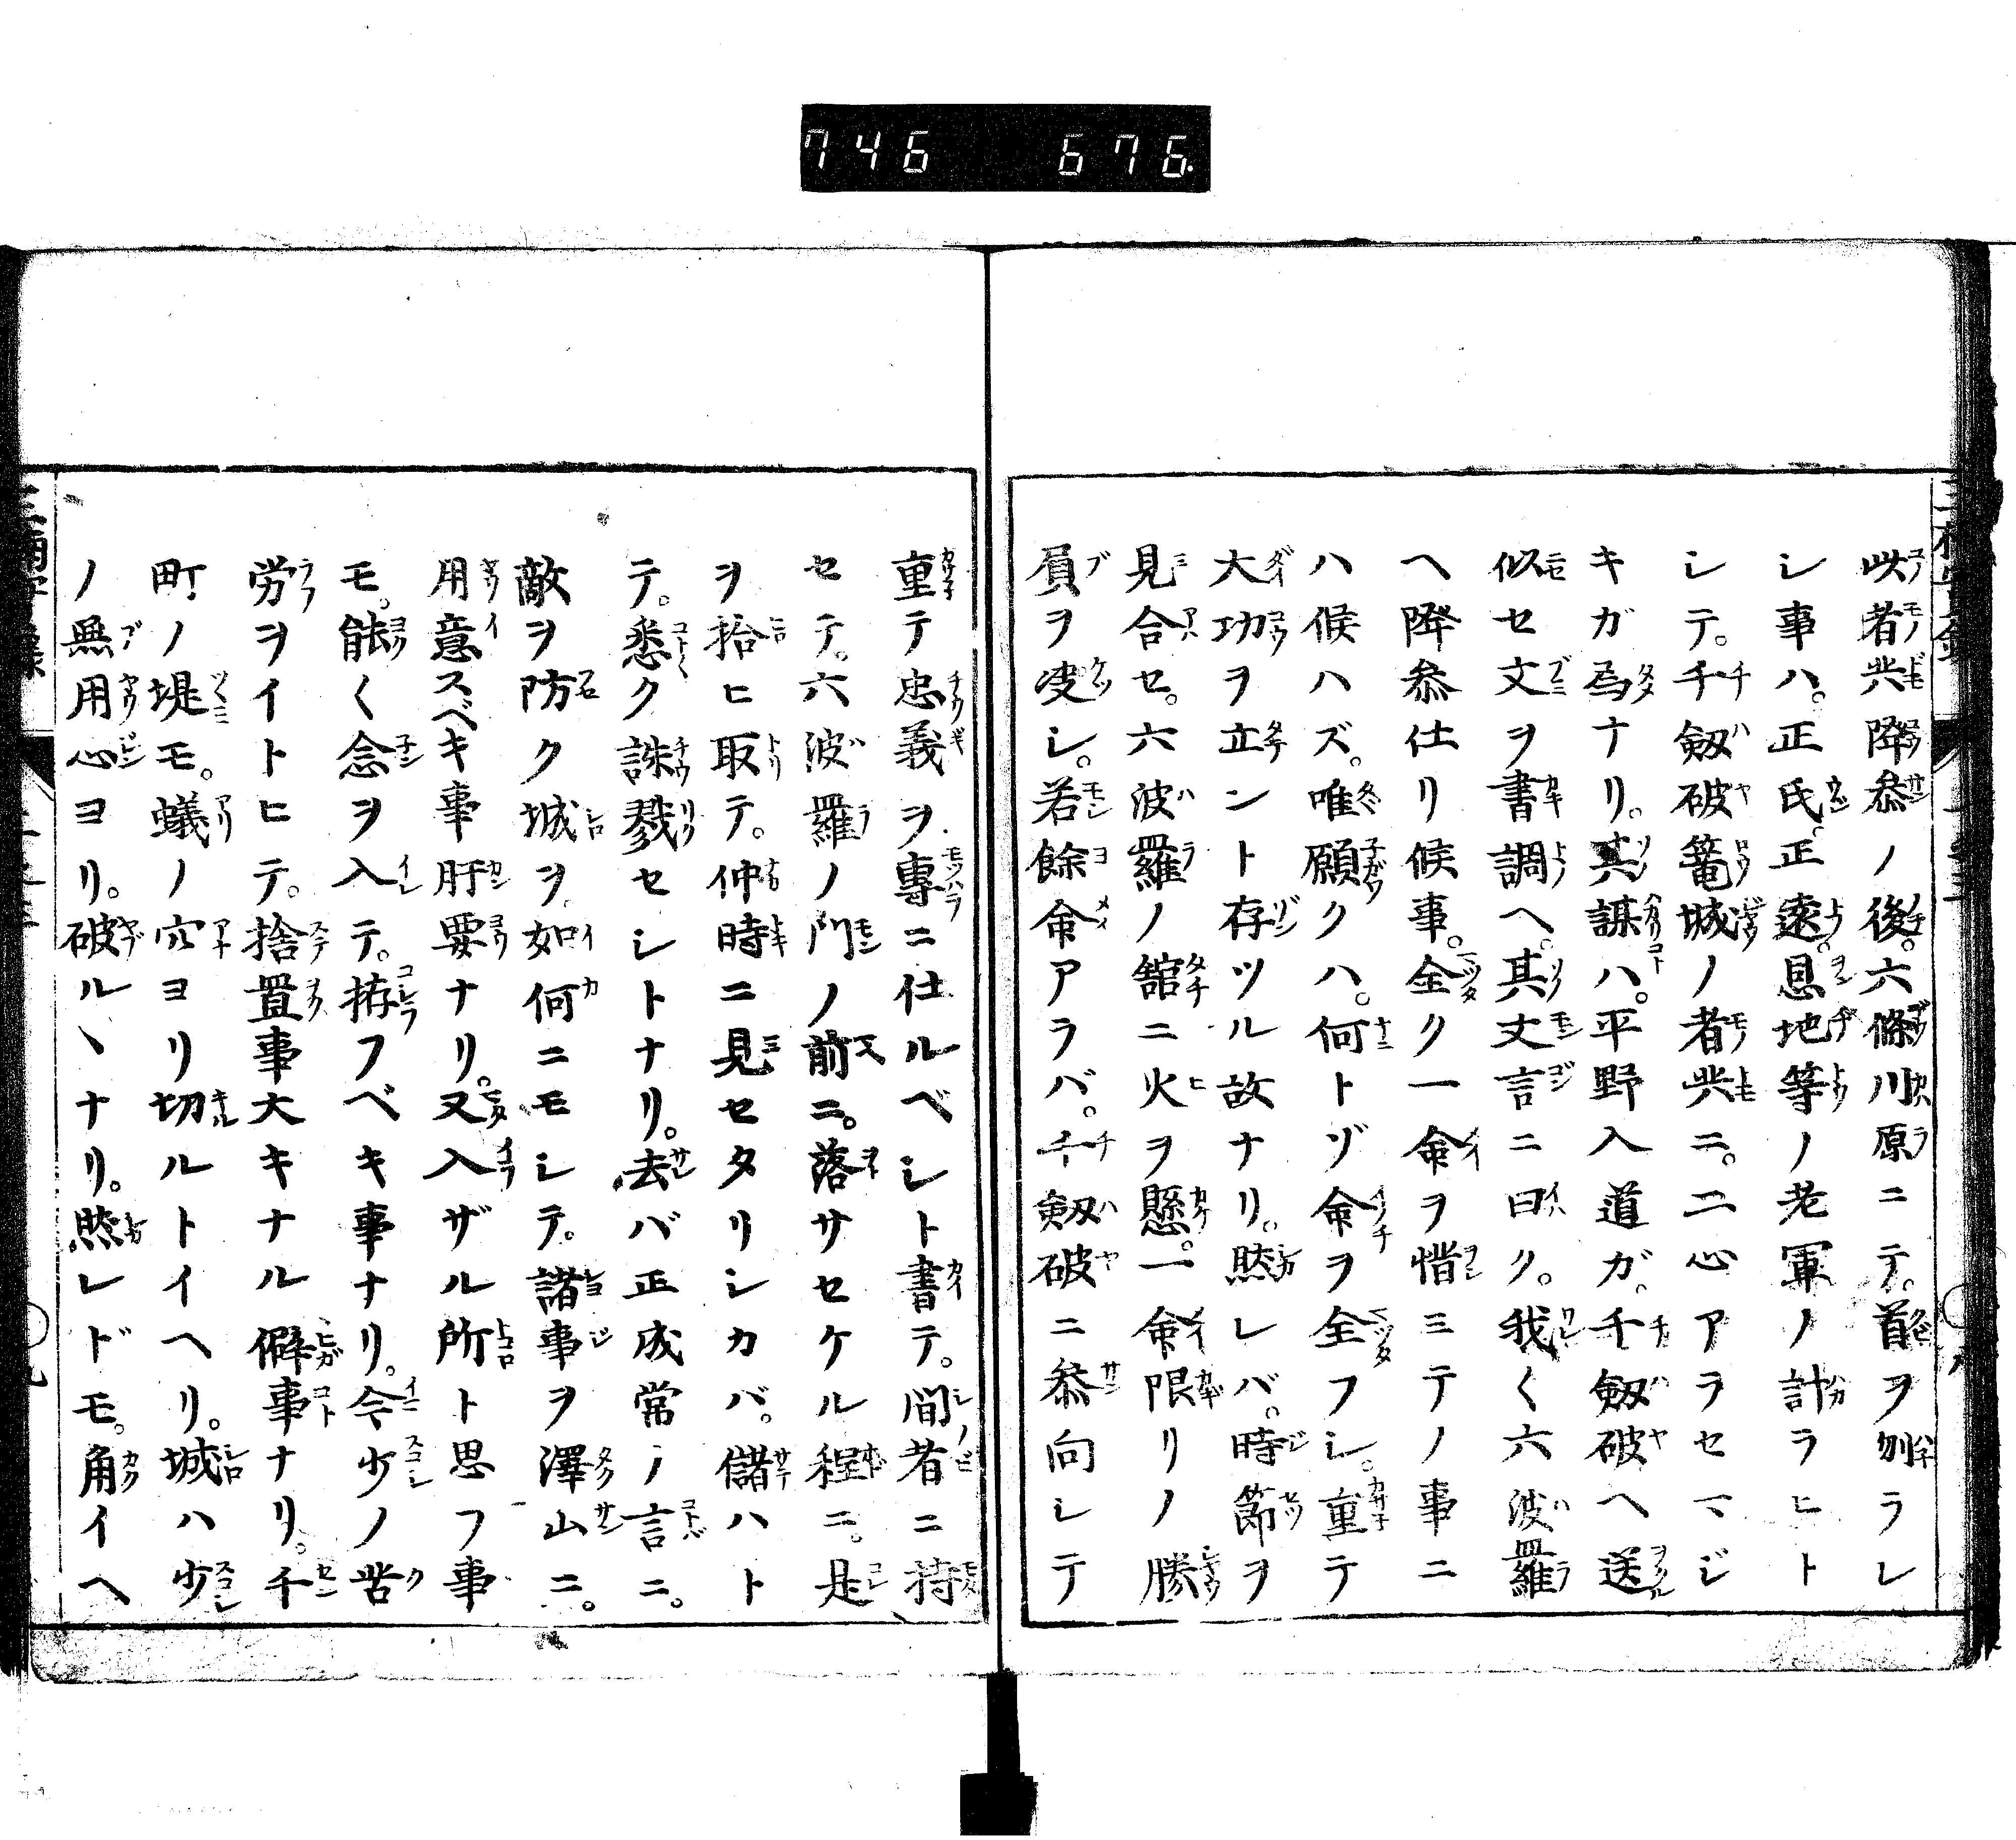 746 676.
此者共降参ノ後。六條川原ニテ。首ヲ刎ラレ
シ事ハ。正氏。正遠。恩地等ノ老軍ノ計ラヒト
シテ。千劔破篭城ノ者共ニ。二心アラセマジ
キガ為ナリ。其謀ハ。平野入道ガ。千劔破ヘ送
似セ文ヲ書調ヘ。其文言ニ曰ク。我〱六波羅
ヘ降参仕リ候事。全ク一命ヲ惜ミテノ事ニ
ハ候ハズ。唯願クハ。何トゾ命ヲ全フシ。重テ
大功ヲ立ントト存ツル故ナリ。然レバ。時節ヲ
見合セ。六波羅ノ舘ニ火ヲ懸。一命限リノ勝
負ヲ决シ。若餘命アラバ。千劔破ニ参向シテ
重テ忠義ヲ專ニ仕ルベシト書テ。間者ニ持
セテ。六波羅ノ門ノ前ニ。落サセケル程ニ。是
ヲ拾ヒ取テ。仲時ニ見セタリシカバ。儲ハト
テ。悉ク誅戮セシトナリ。去バ正成常ノ言ニ。
敵ヲ防ク城ヲ。如何ニモシテ。諸事ヲ澤山ニ。
用意スベキ事肝要ナリ。又入ザル所ト思フ事
モ。能〱念ヲ入テ。拵フベキ事ナリ。今少ノ苦
労ヲイトヒテ。捨置事大キナル僻事ナリ。千
町ノ堤モ。蟻ノ穴ヨリ切ルトイヘリ。城ハ少
ノ無用心ヨリ。破ルヽナリ。然レドモ。角イヘ